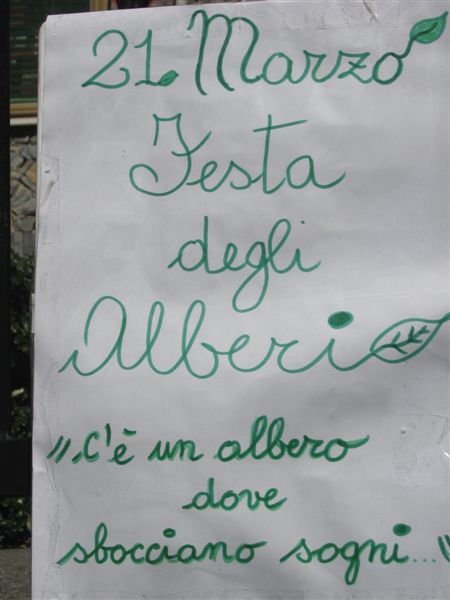 21 Marzo
Festa
degli
Alberi
"C'è un albero
dove
sbocciano sogni..."